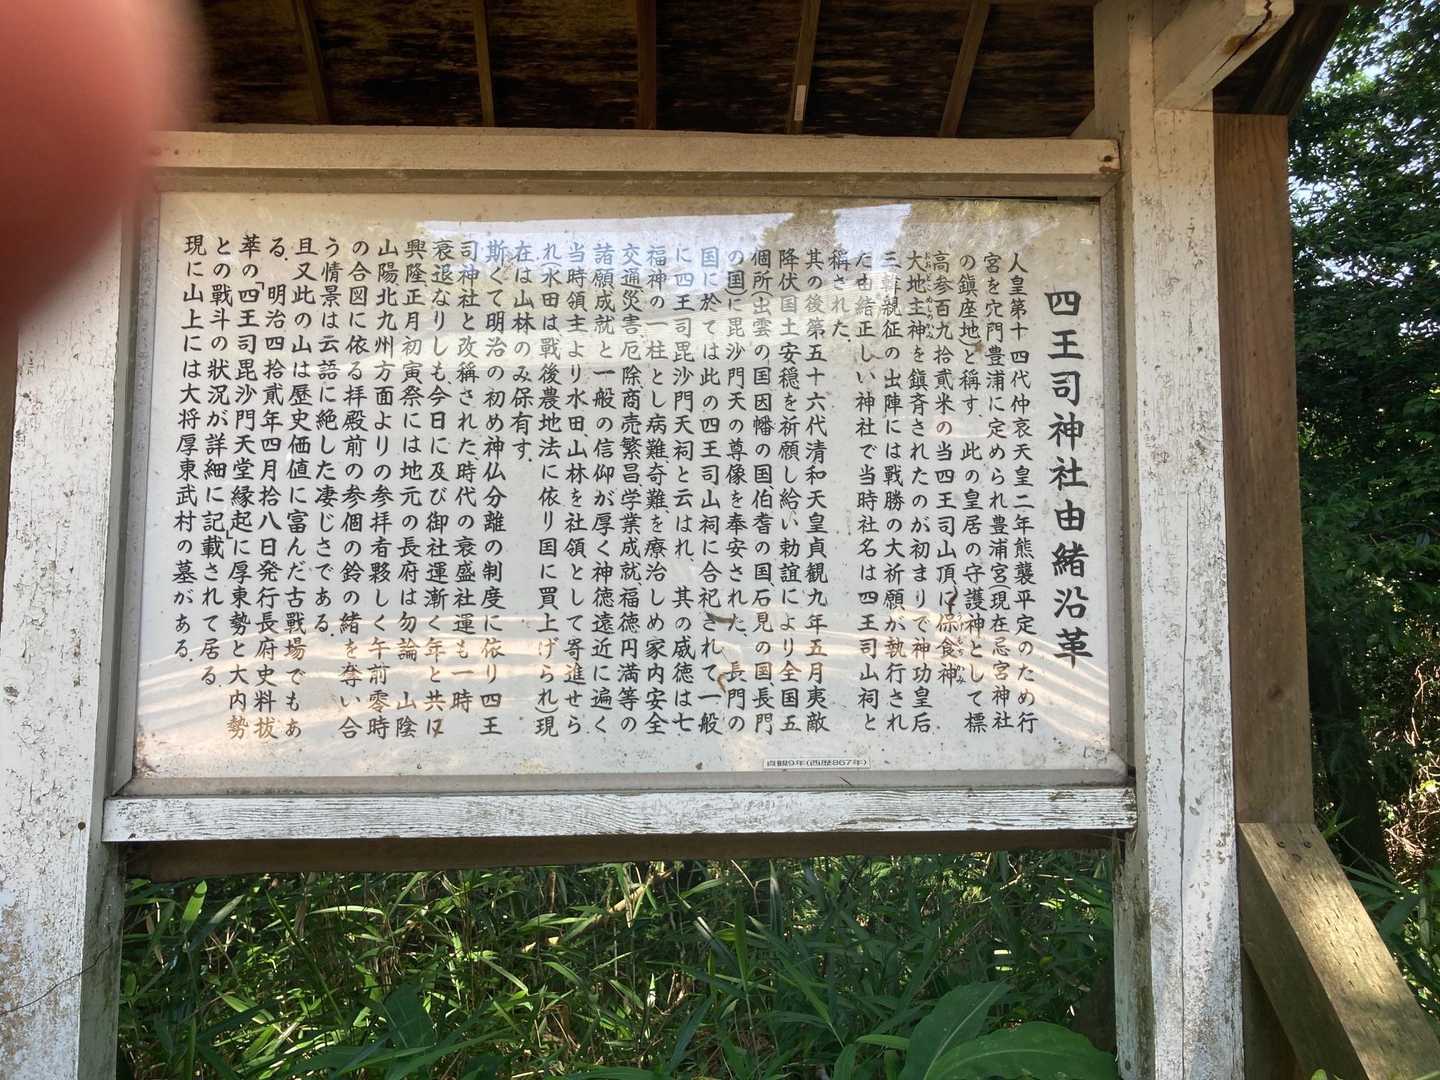 四王司神社由緒沿革
人皇第十四代仲哀天皇二年熊襲平定のため行
宮を穴門豊浦に定められ豊浦宮(現在忌宮神社
の鎮座地)と称す. 此の皇居の守護神として標
高参百九拾貳米の当四王司山頂に保食神
大地主神を鎮斉されたのが初まりで神功皇后
三韓親征の出陣には戦勝の大祈願が執行され
た由緒正しい神社で当時社名は四王司山祠と
稱された.
其の後第五十六代清和天皇貞観九年五月夷敵
降伏国土安穏を祈願し給い勅誼により全国五
個所出雲の国因幡の国,伯耆の国石見の国長門
の国に毘沙門天の尊像を奉安された. 長門の
国に於ては此の四王司山祠に合祀されて一般
に四王司毘沙門天祠と云はれ, 其の威徳は七
福神の一柱とし病難奇難を療治しめ家内安全
交通災害厄除商売繁昌学業成就,福徳円満等の
諸願成就と一般の信仰が厚く神徳遠近に遍く
当時領主より水田山林を社領として寄進せら
れ(水田は戦後農地法に依り国に買上げられ)現
在は山林のみ保有す.
斯くて明治の初め神仏分離の制度に依り四王
司神社と改稱された時代の衰盛社運も一時
衰退なりしも今日に及び御社運漸く年と共に
興隆正月初寅祭には地元の長府は勿論 山陰
山陽北九州方面よりの参拝者夥しく午前零時
の合図に依る拝殿前の参個の鈴の緒を奪い合
う情景は云語に絶した凄じさである.
且又此の山は歴史価値に富んだ古戦場でもあ
る. 明治四拾貳年四月拾八日発行長府史料抜
萃の「四王司毘沙門天堂縁起」に厚東勢と大内勢
との戦斗の状況が詳細に記載されて居る.
現に山上には大将厚東武村の墓がある.
貞観9年(西歴867年)